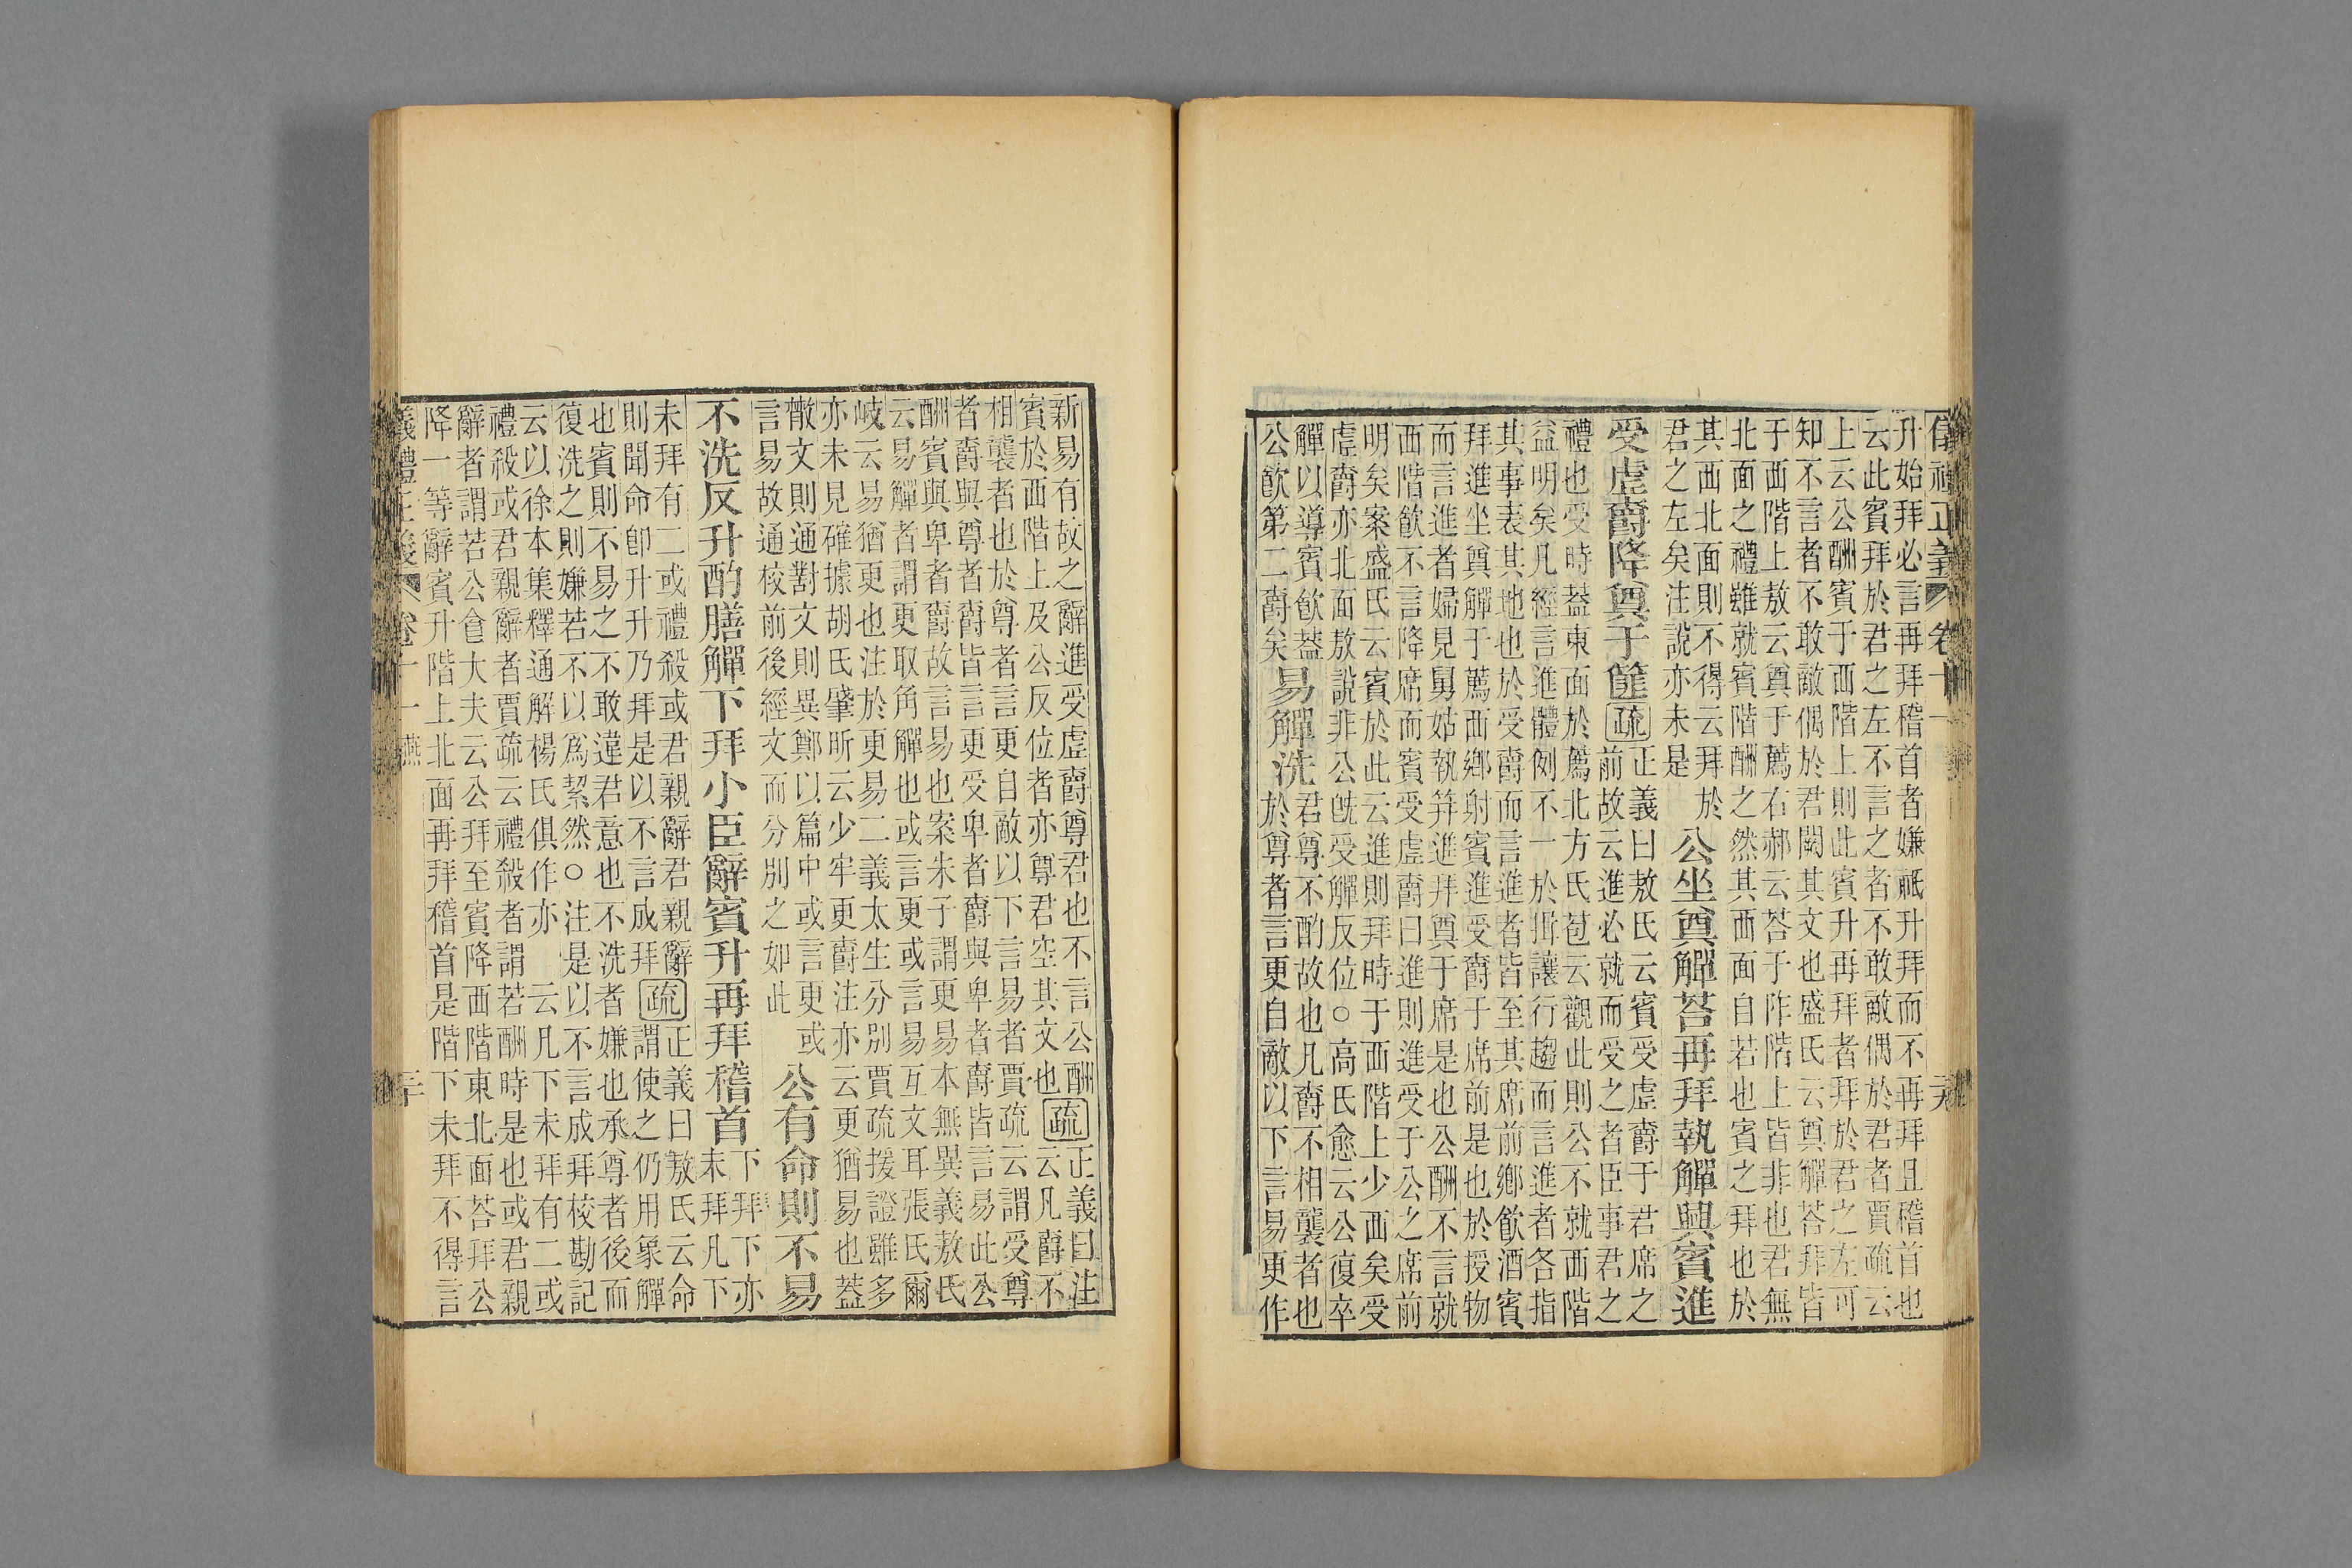 升始拜必言再拜稽首者嫌祗升拜而不再拜且稽首也
云此賓拜於君之左不言之者不敢敵偶於君者賈疏云
上云公酬賓于西階上則此賓升再拜者拜於君之左可
知不言者不敢敵偶於君闕其文也盛氏云奠觶荅拜皆
于西階上敖云奠于薦右郝云荅于阼階上皆非也君無
北面之禮雖就賓階酬之然其西面自若也賓之拜也於
其西北面則不得云拜於
君之左矣注說亦未是
公坐奠觶荅再拜執觶興賓進
受虛爵降奠于篚疏
正義曰敖氏云賓受虛爵于君席之
前故云進必就而受之者臣事君之
禮也受時蓋東面於薦北方氏苞云觀此則公不就西階
益明矣凡經言進體例不一於揖讓行趨而言進者各指
其事表其地也於受爵而言進者皆至其席前鄉飲酒賓
拜進坐奠觶于薦西鄉射賓進受爵于席前是也於授物
而言進者婦見舅姑執笲進拜奠于席是也公酬不言就
西階飲不言降席而賓受虛爵曰進則進受于公之席前
明矣案盛氏云賓於此云進則拜時于西階上少西矣受
虛爵亦北面敖說非公旣受觶反位○高氏愈云公復卒
觶以導賓飲蓋
公飲第二爵矣
易觶洗
君尊不酌故也凡爵不相襲者也
於尊者言更自敵以下言易更作
新易有故之辭進受虛爵尊君也不言公酬
賓於西階上及公反位者亦尊君空其文也疏
正義曰注
云凡爵不
相襲者也於尊者言更自敵以下言易者賈疏云謂受尊
者爵與尊者爵皆言更受卑者爵與卑者爵皆言易此公
酬賓與卑者爵故言易也案朱子謂更易本無異義敖氏
云易觶者謂更取角觶也或言更或言易互文耳張氏爾
岐云易猶更也注於更易二義太生分別賈疏援證雖多
亦未見確據胡氏肇昕云少牢更爵注亦云更猶易也蓋
散文則通對文則異鄭以篇中或言更或
言易故通校前後經文而分別之如此
公有命則不易
不洗反升酌膳觶下拜小臣辭賓升再拜稽首
下拜下亦
未拜凡下
未拜有二或禮殺或君親辭君親辭
則聞命卽升升乃拜是以不言成拜疏
正義曰敖氏云命
謂使之仍用象觶
也賓則不易之不敢違君意也不洗者嫌也承尊者後而
復洗之則嫌若不以爲絜然○注是以不言成拜校勘記
云以徐本集釋通解楊氏俱作亦 云凡下未拜有二或
禮殺或君親辭者賈疏云禮殺者謂若酬時是也或君親
辭者謂若公食大夫云公拜至賓降西階東北面荅拜公
降一等辭賓升階上北面再拜稽首是階下未拜不得言